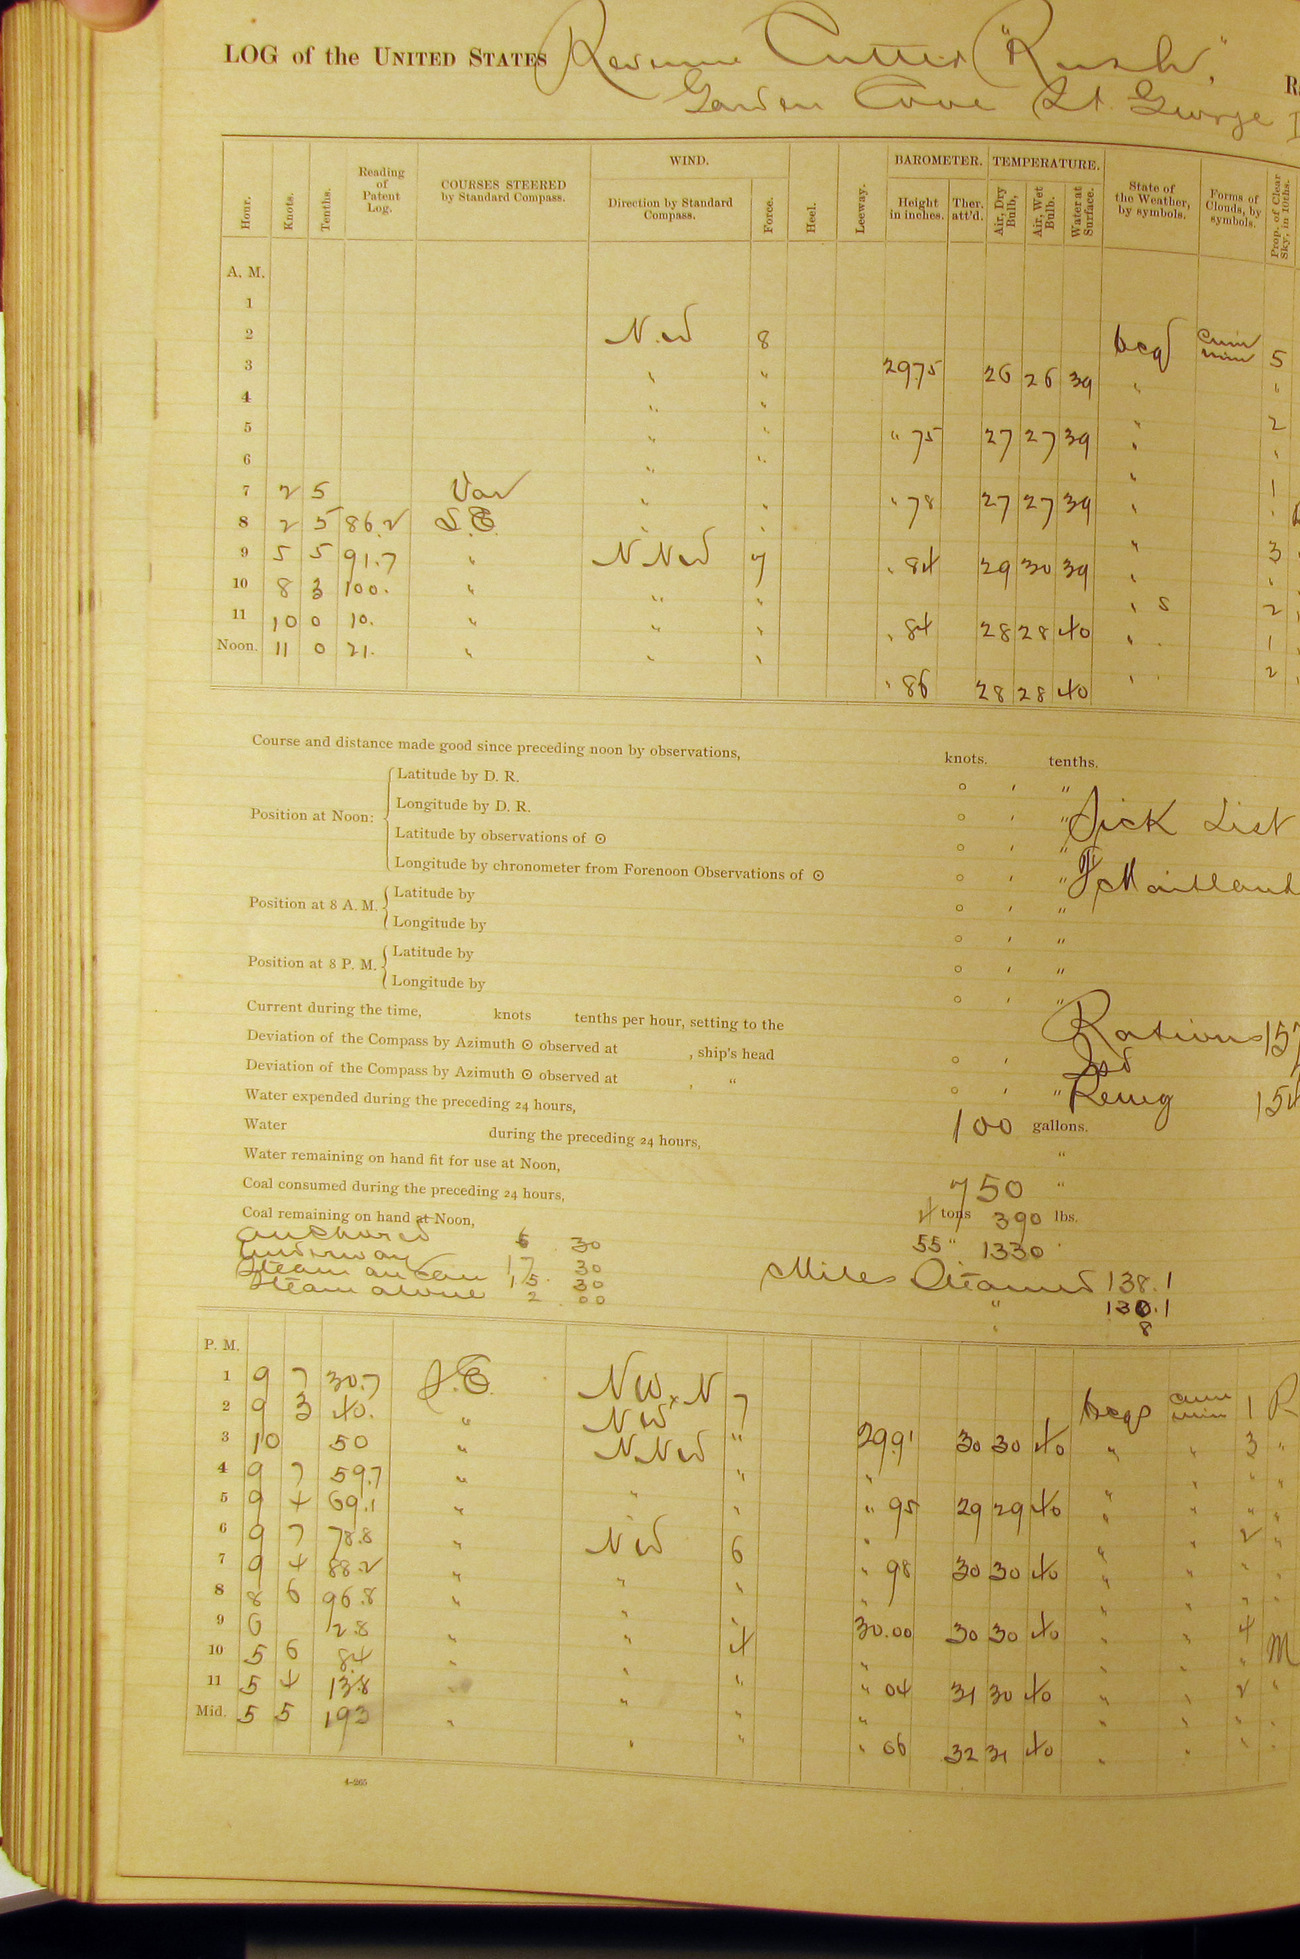 LOG of the UNITED STATES Revenue Cutter "Rush",
Garden Cove St. George I
R.
Hour. Knots. Tenths. Reading of Patent Log. COURSES STEERED by Standard Compass. WIND. Direction by Standard Compass. Force. Heel. Leeway. BAROMETER. Height in inches. Ther. att'd. TEMPERATURE. Air, Dry Bulb. Air, Wet Bulb. Water at Surface. State of the Weather, by symbols. Forms of Clouds, by symbols. Prop. of Clear Sky, in 10ths.
A. M.
1
2 N.W 8 bcq 5
3 " " 29.75 26 26 39 " "
4 " " " 2
5 " " " 75 27 27 39 " "
6 " " " 1
7 2 5 Var " " " 78 27 27 39 " "
8 2 5 86.2 S.E. " " " 3
9 5 5 91.7 " NNW 7 " 84 29 30 39 " "
10 8 3 100. " " " " s 2
11 10 0 10. " " " " 84 28 28 40 " " 1
Noon. 11 0 21. " " " " 86 28 28 40 " " 2
Course and distance made good since preceding noon by observations, knots. tenths.
Position at Noon: Latitude by D. R. ° ′ ″
Longitude by D. R. ° ′ ″ Sick List
Latitude by observations of ⊙ ° ′ ″
Longitude by chronometer from Forenoon Observations of ⊙ ° ′ ″ Maitland
Position at 8 A. M. Latitude by ° ′ ″
Longitude by ° ′ ″
Position at 8 P. M. Latitude by ° ′ ″
Longitude by ° ′ ″
Current during the time, knots tenths per hour, setting to the Rations 157
Deviation of the Compass by Azimuth ⊙ observed at , ship's head ° ′
Deviation of the Compass by Azimuth ⊙ observed at , " ° ′ ″ Remg 154
Water expended during the preceding 24 hours, 100 gallons.
Water during the preceding 24 hours, "
Water remaining on hand fit for use at Noon, 750 "
Coal consumed during the preceding 24 hours, 4 tons 390 lbs.
Coal remaining on hand at Noon, 55 " 1330 "
Anchored 6 30
Underway 17 30 Miles Steamed 138.1
Steam and sail 15 30 " 130.1
Steam alone 2 00 " 8
P. M.
1 9 7 30.7 S.E. NW x N 7 bcqs 1
2 9 3 40. " NW " 3
3 10 50 " NNW " 29.91 30 30 40 " " "
4 9 7 59.7 " " " " " " "
5 9 4 69.1 " " " " 95 29 29 40 " " 2
6 9 7 78.8 " NW 6 " " " "
7 9 4 88.2 " " " " 98 30 30 40 " " "
8 8 6 96.8 " " " " " " 4
9 6 2.8 " " 4 30.00 30 30 40 " " "
10 5 6 8.4 " " " " " " 2
11 5 4 13.8 " " " " 04 31 30 40 " " "
Mid. 5 5 19.3 " " " " 06 32 31 40 " " "
4–265